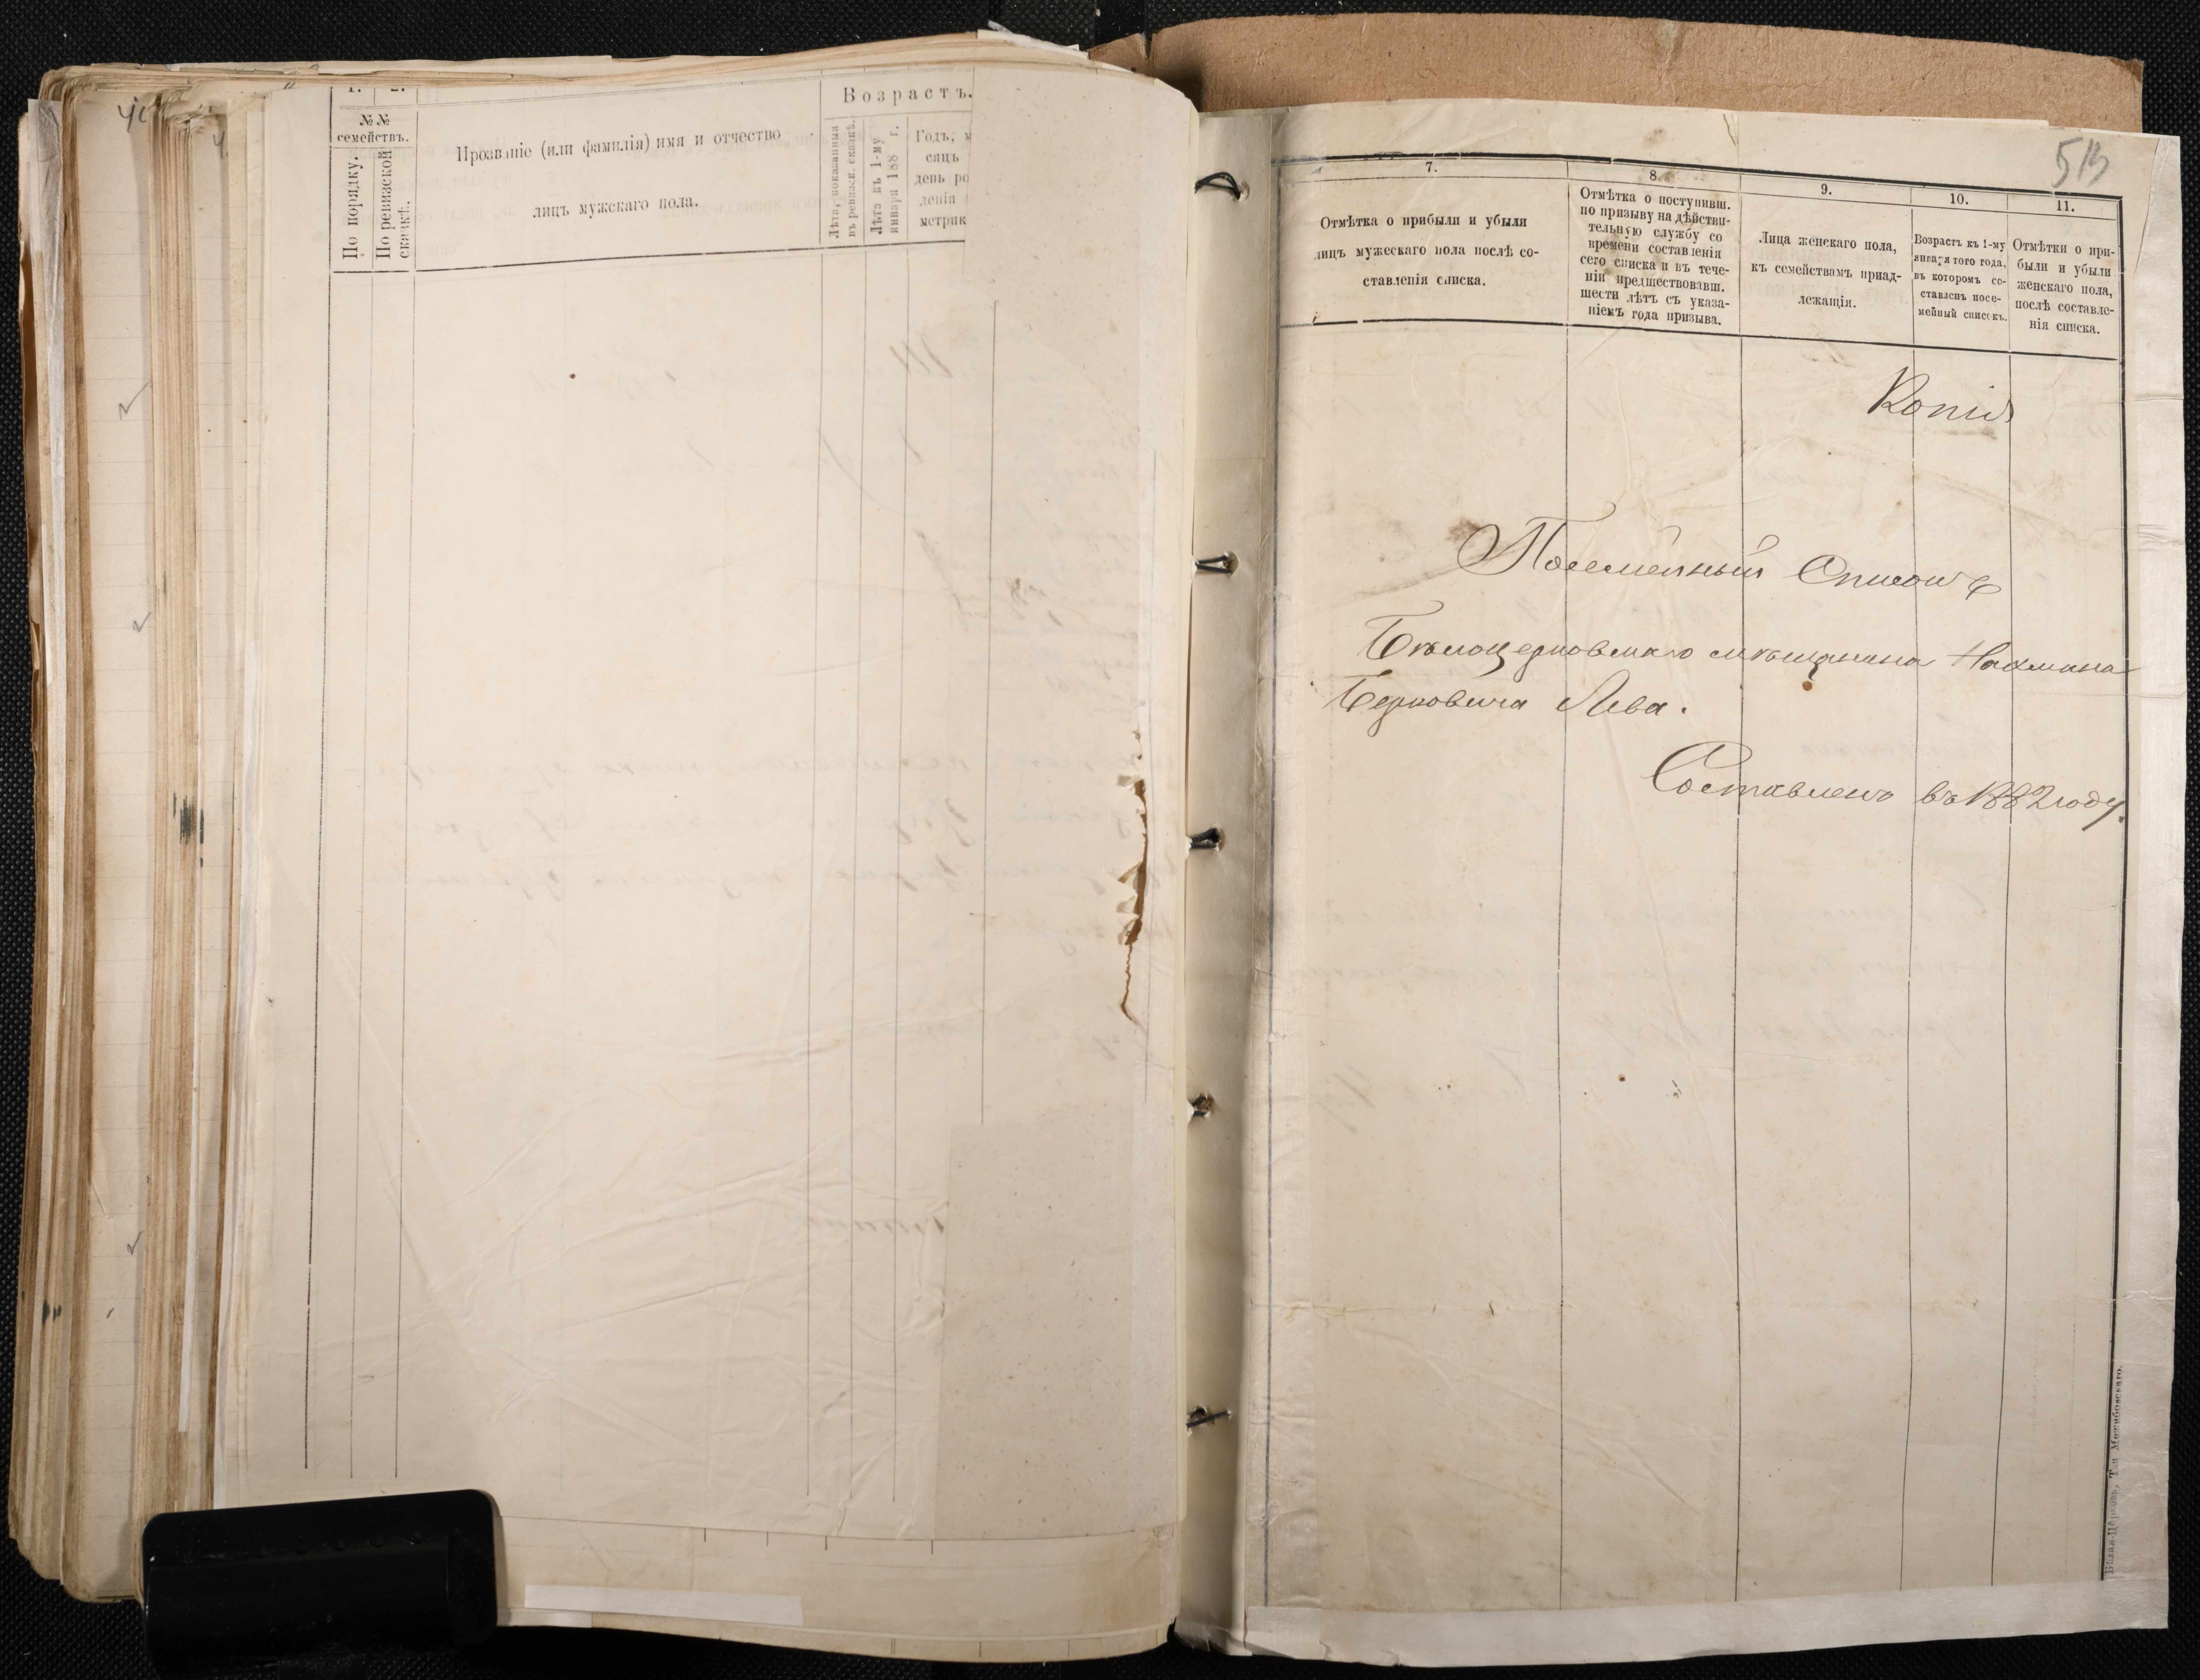 №№
семействъ.
По порядку.
По ревизской
сказкѣ.
Прозваніе (или фамилія) имя и отчество
лицъ мужскаго пола.
Возрастъ.
Лѣта, показанныя
въ ревизск. сказкѣ.
Лѣта къ 1-му
января 188 г.
Годъ, м
сяцъ
день ро
денія
метрик
513
7.
Отмѣтка о прибыли и убыли
лицъ мужескаго пола послѣ со-
ставленія списка.
8.
Отмѣтка о поступивш.
по призыву на дѣйстви-
тельную службу со
времени составленія
сего списка и въ тече-
ніи предшествовавш.
шести лѣтъ съ указа-
ніемъ года призыва.
9.
Лица женскаго пола,
къ семействамъ приад-
лежащія.
10.
Возрастъ къ 1-му
января того года,
въ которомъ со-
ставленъ посе-
мейный списокъ.
11.
Отмѣтки о при-
были и убыли
женскаго пола,
послѣ составле-
нія списка.
Копія
Посемейный Списокъ
Бѣлоцерковскаго мѣщанина Нахмана
Берковича Лева.
Составленъ въ 1882 году.
Бѣлая-Церковь, Тип